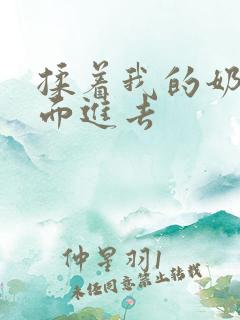 揉着我的奶
而进去
仲星羽1
未经同意禁止转载